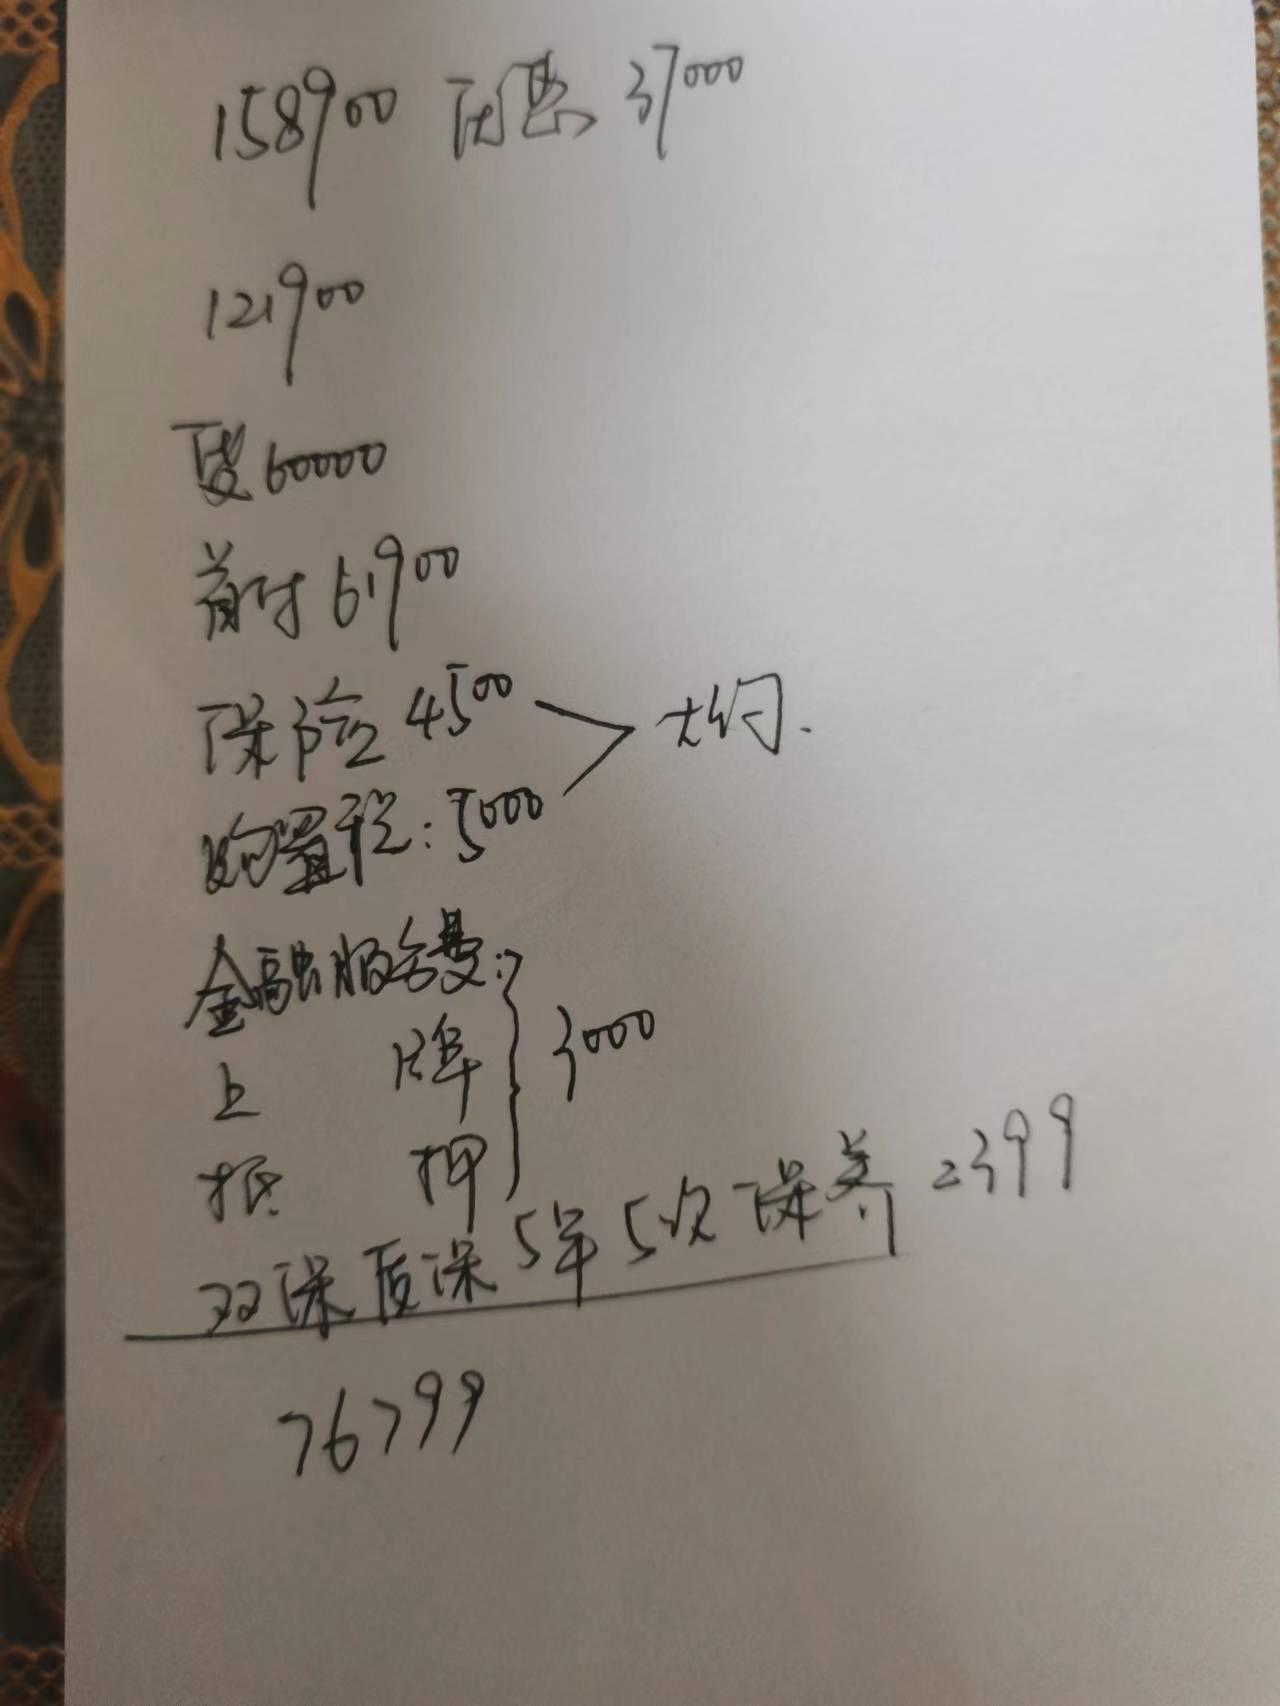 158900 优惠 37000
121900
贷 60000
首付 61900
保险 4500
大约.
购置税: 5000
金融服务费:
上 牌
3000
抵 押
双保质保5年5次保养 2399
76799